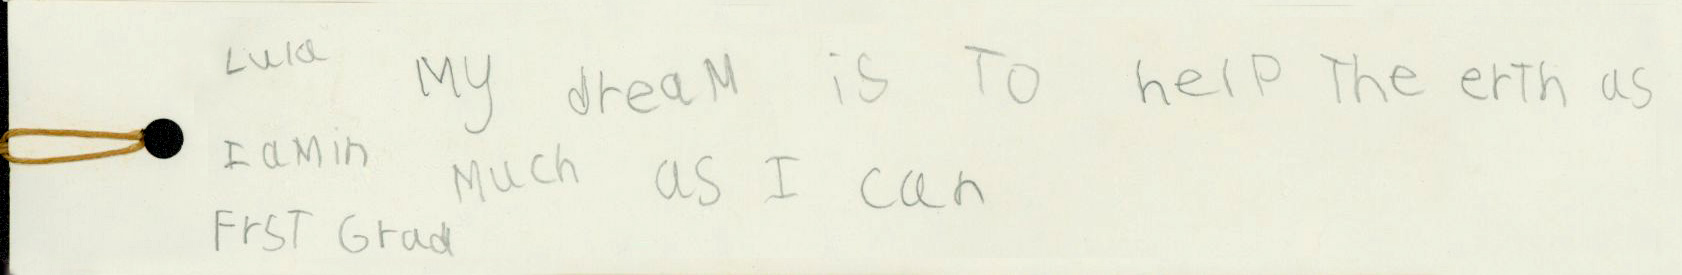 Lula
I aMin
FrST Grad
My dreaM is To help The erth as
Much as I can